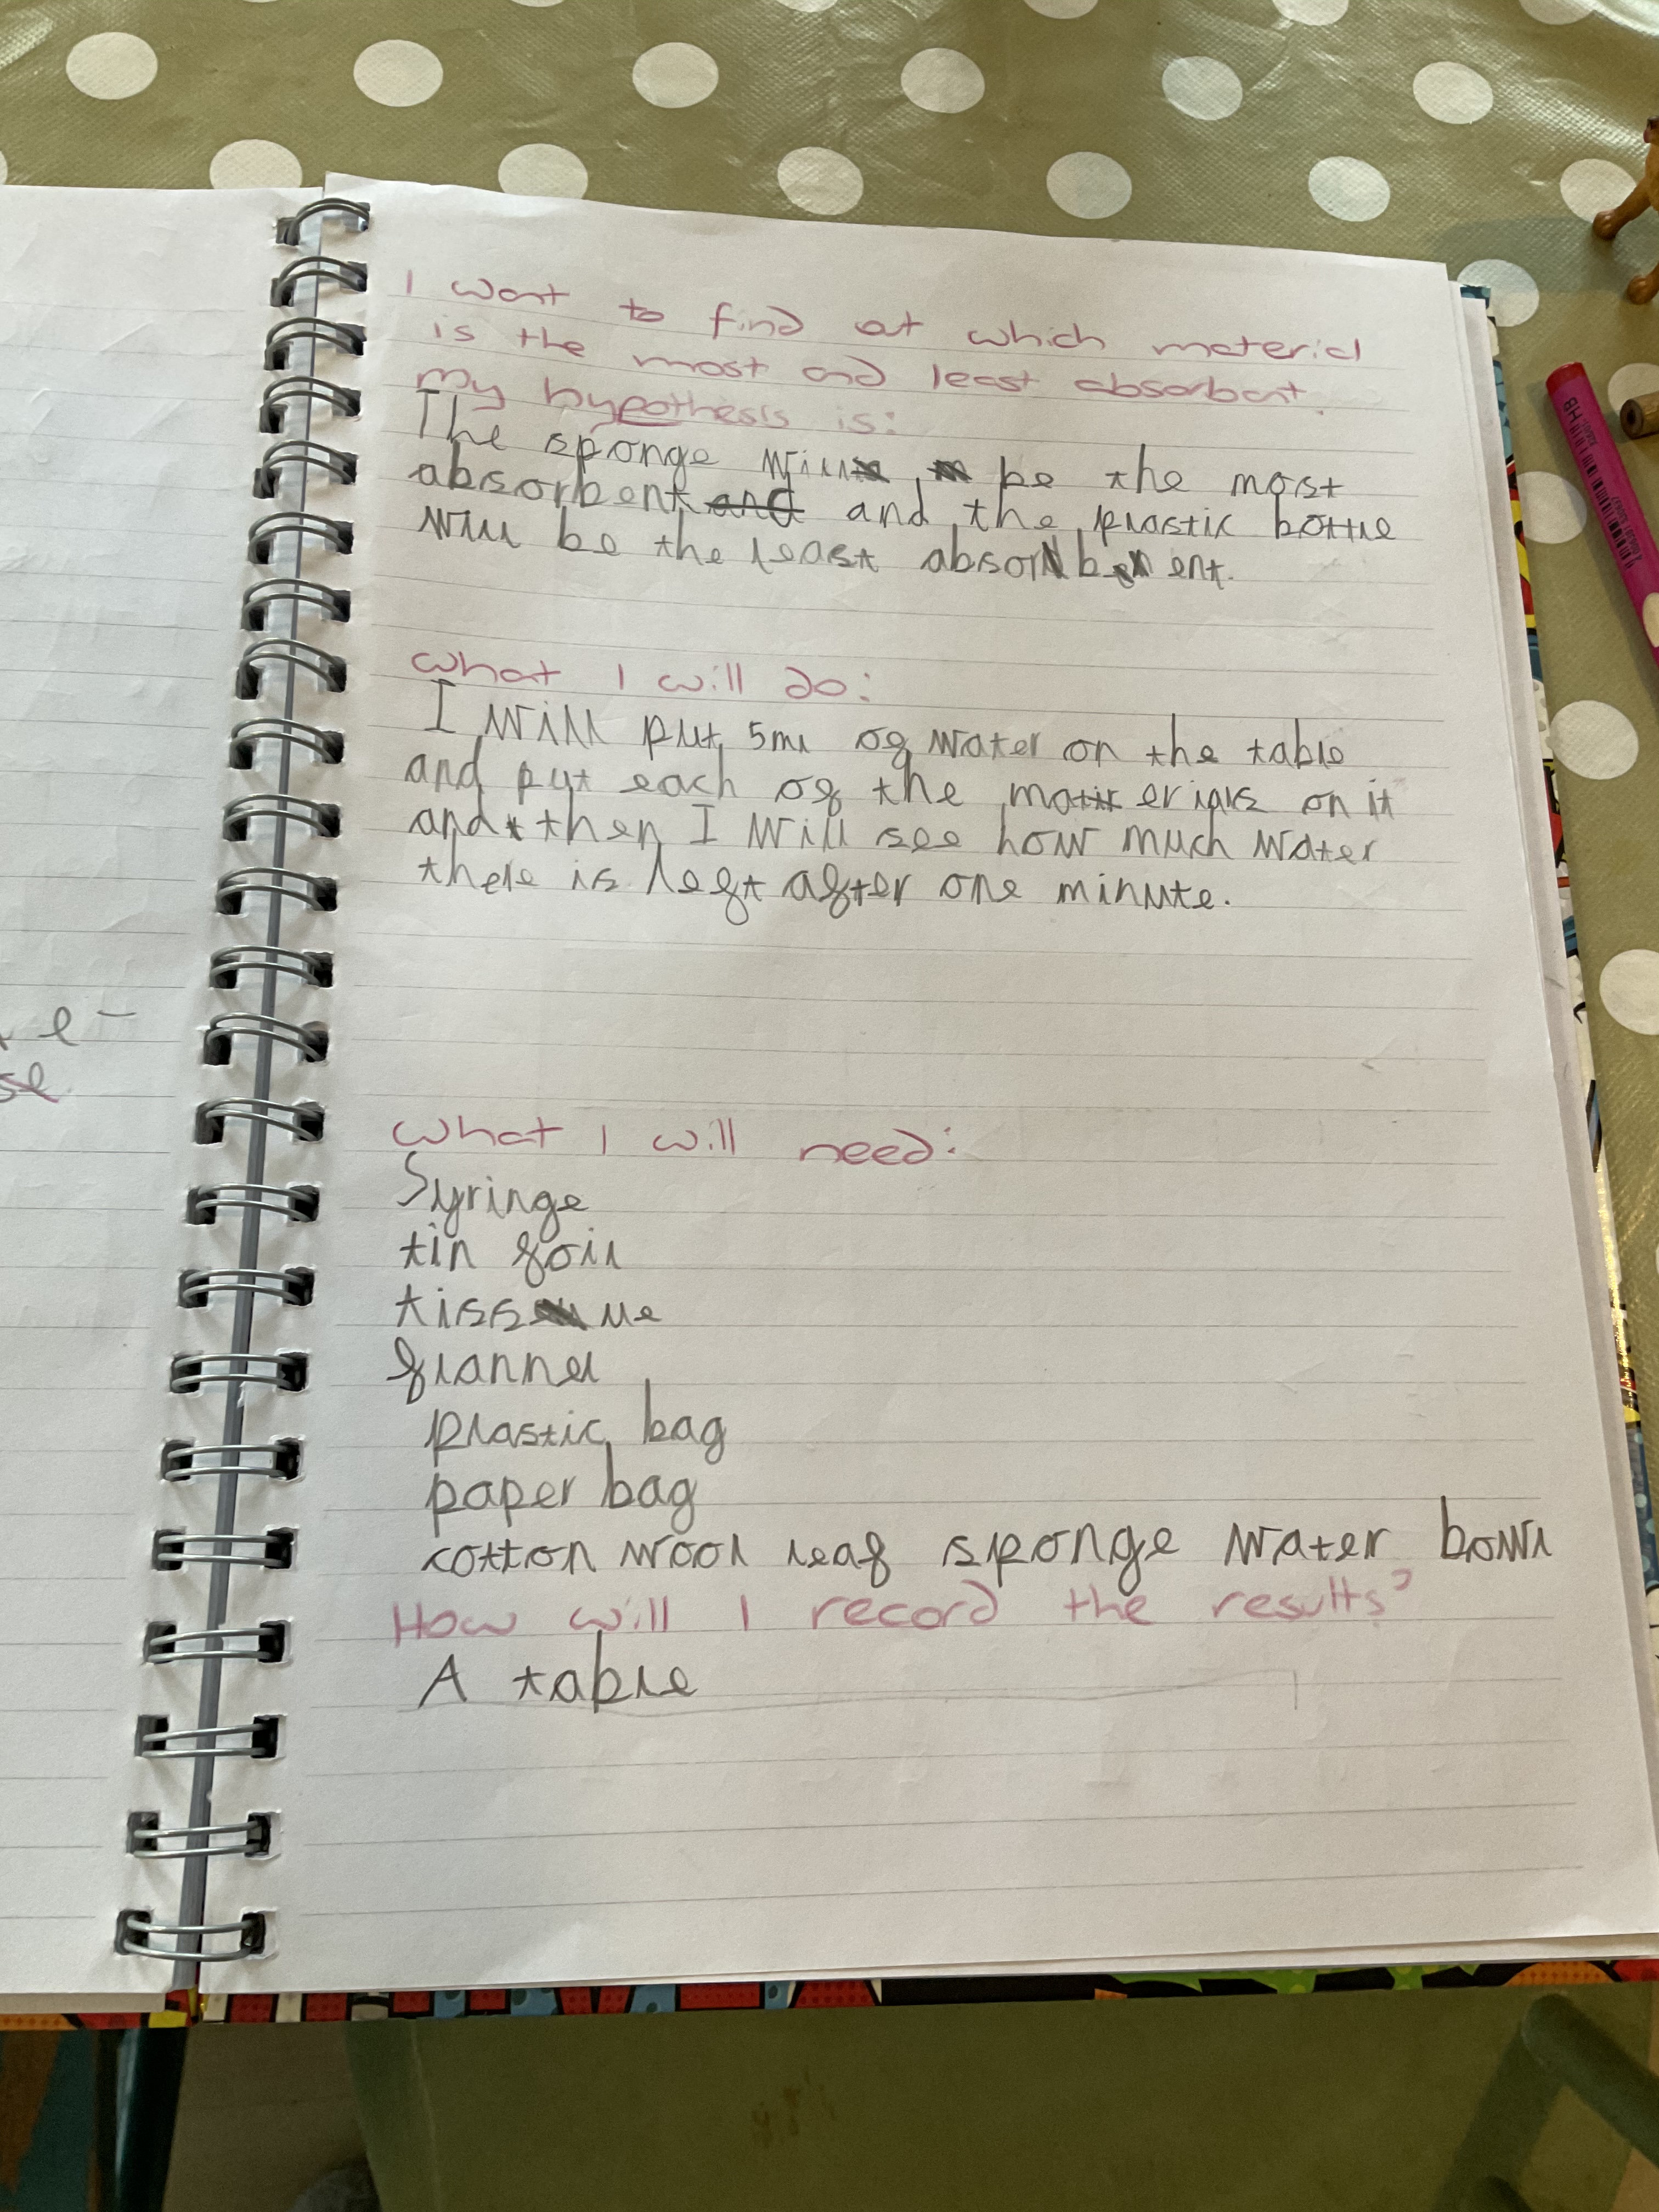 I want to find out which material
is the most and least absorbent.
My hypothesis is:
The sponge will be the most
absorbent and and the plastic bottle
will be the least absorbent.
What I will do:
I will put 5ml of water on the table
and put each of the materials on it
and then I will see how much water
there is left after one minute.
What I will need:
Syringe
tin foil
tissue
flannel
plastic bag
paper bag
cotton wool leaf sponge water bowl
How will I record the results?
A table
e-
se
HB